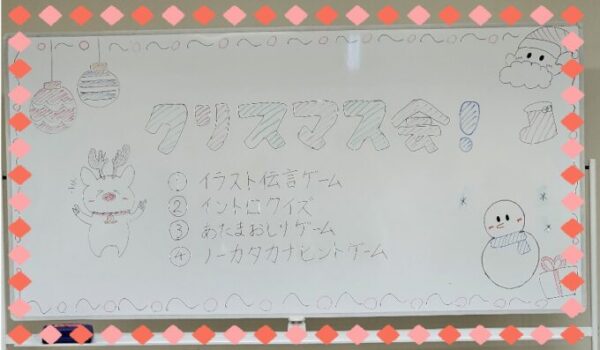 クリスマス会!
① イラスト伝言ゲーム
② イントロクイズ
③ あたまおしりゲーム
④ ノーカタカナヒントゲーム